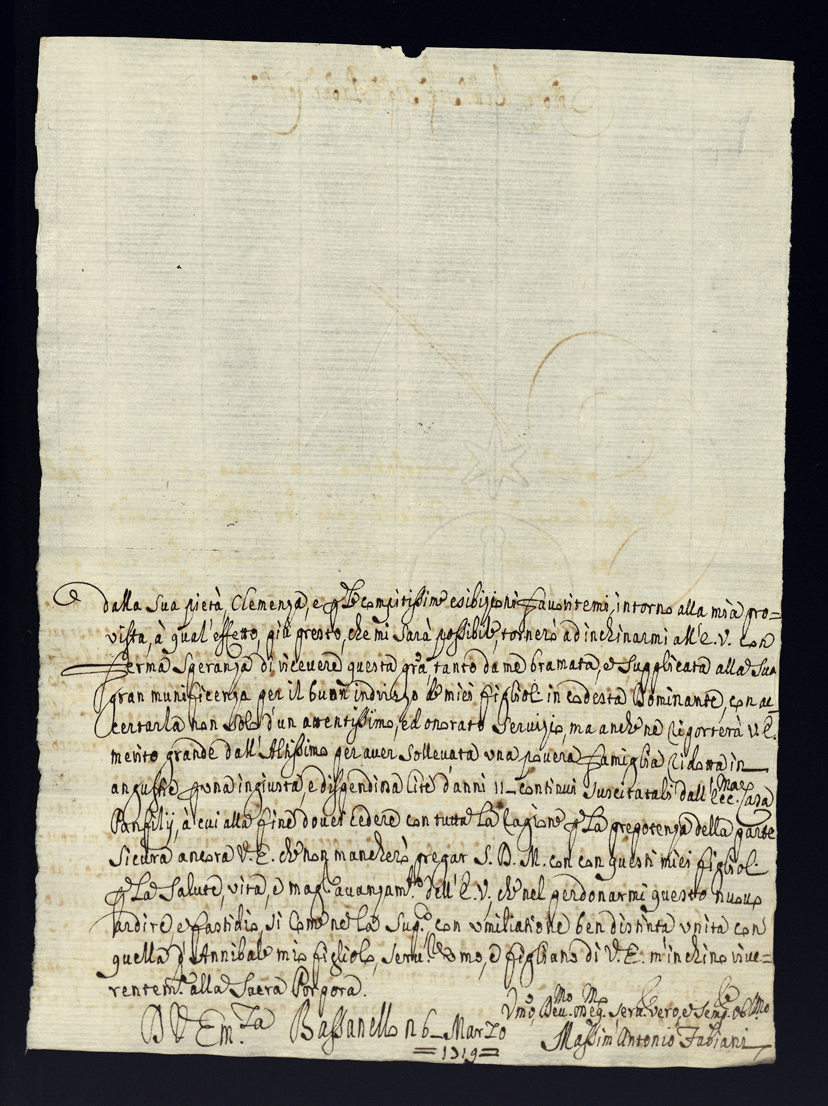 dalla Sua pietà, Clemenza, e p le compitissime esibizioni favoritemi, intorno alla mia pro-
vista, à qual'effetto, più presto, che mi sarà possibile, tornerò ad inchinarmi all'E. V. con
ferma speranza di ricevere questa gra tanto da me bramata, e supplicata alla sua
gran munificenza per il buon indrizzo de miei figlioli in codesta Dominante, con ac-
certarla non solo d'un attentissimo, ed onorato servizio, ma anche ne riporterà V. E.
merito grande dall'Altissimo per aver sollevata una povera famiglia ridotta in
angustie p una ingiusta, e dispendiosa lite d'anni 11 continui suscitatali dall'Ecc.ma Casa
Panfily, à cui alla fine dovei cedere con tutta la ragione p la prepotenza della parte
Sicura ancora V. E. che non mancherò pregar S. D. M. con con questi miei figlioli
p la salute, vita, e mag. avanzam.to dell'E. V. che nel perdonarmi questo nuovo
ardire e fastidio, si come ne la sup.co con umiliatione ben distinta unita con
quella d'Annibale mio figliolo, e figliano di V. E. m'inchino rive-
rentem.te alla Sacra Porpora.
D V Em.za Bassanello 26 Marzo
1719
Umo, Devmo Obmo
Massim'Antonio Fabiani